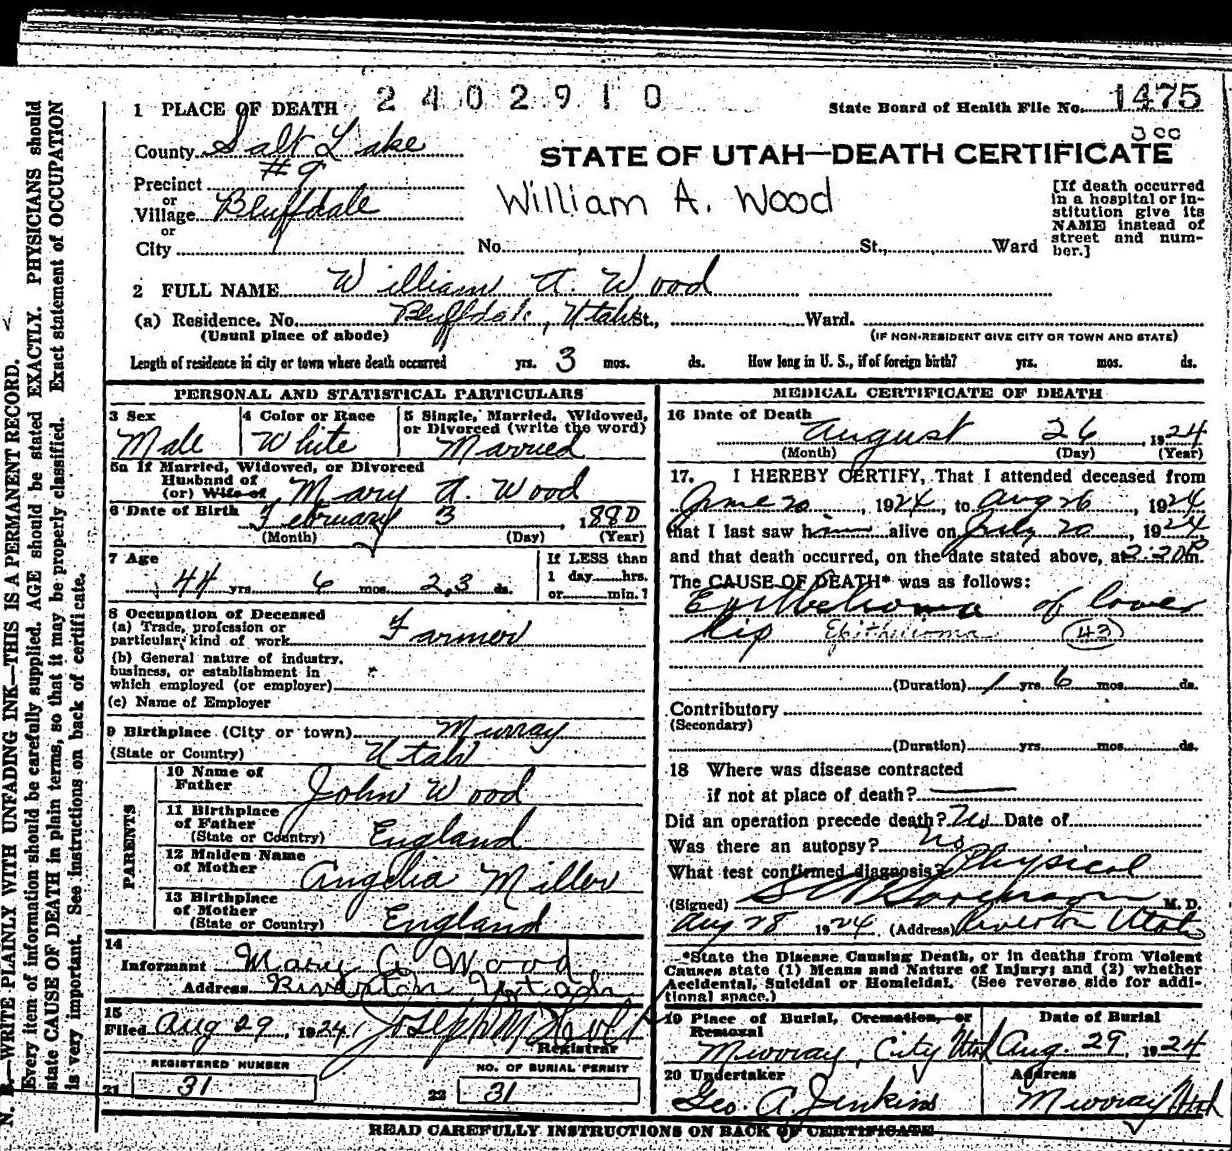 2402910
1 PLACE OF DEATH
State Board of Health File No. 1475
County Salt Lake
300
STATE OF UTAH—DEATH CERTIFICATE
Precinct #9
or
Village Bluffdale
or
City
William A. Wood
[If death occurred
in a hospital or in-
stitution give its
NAME instead of
street and num-
ber.]
No. St., Ward
2 FULL NAME William A. Wood
(a) Residence. No. Bluffdale, Utah St., Ward.
(Usual place of abode) (IF NON-RESIDENT GIVE CITY OR TOWN AND STATE)
Length of residence in city or town where death occurred yrs. 3 mos. ds. How long in U. S., if of foreign birth? yrs. mos. ds.
PERSONAL AND STATISTICAL PARTICULARS
3 Sex
Male
4 Color or Race
White
5 Single, Married, Widowed,
or Divorced (write the word)
Married
5a If Married, Widowed, or Divorced
Husband of
(or) Wife of Mary A. Wood
6 Date of Birth February 3, 1880
(Month) (Day) (Year)
7 Age
44 yrs. 6 mos. 23 ds.
If LESS than
1 day hrs.
or min.?
8 Occupation of Deceased
(a) Trade, profession or
particular kind of work Farmer
(b) General nature of industry,
business, or establishment in
which employed (or employer)
(c) Name of Employer
9 Birthplace (City or town) Murray
(State or Country) Utah
PARENTS
10 Name of
Father John Wood
11 Birthplace
of Father
(State or Country) England
12 Maiden Name
of Mother Angelia Miller
13 Birthplace
of Mother
(State or Country) England
14
Informant Mary A Wood
Address Riverton Utah
15
Filed Aug 29, 1924 Joseph M
Registrar
REGISTERED NUMBER
21 31
NO. OF BURIAL PERMIT
22 31
MEDICAL CERTIFICATE OF DEATH
16 Date of Death
August 26, 1924
(Month) (Day) (Year)
17. I HEREBY CERTIFY, That I attended deceased from
June 20, 1924, to Aug 26, 1924
that I last saw him alive on July 20, 1924
and that death occurred, on the date stated above, at 2:20 P m.
The CAUSE OF DEATH* was as follows:
Epithelioma of lower
lip Epithelioma (43)
(Duration) 1 yrs. 6 mos. ds.
Contributory
(Secondary)
(Duration) yrs. mos. ds.
18 Where was disease contracted
if not at place of death?
Did an operation precede death? No Date of
Was there an autopsy? No
What test confirmed diagnosis? Physical
(Signed) Sorenson M. D.
Aug 28 1924 (Address) Riverton Utah
*State the Disease Causing Death, or in deaths from Violent
Causes state (1) Means and Nature of Injury; and (2) whether
Accidental, Suicidal or Homicidal. (See reverse side for addi-
tional space.)
19 Place of Burial, Cremation, or
Removal
Murray City Utah
Date of Burial
Aug. 29, 1924
20 Undertaker
Geo. A Jenkins
Address
Murray Utah
READ CAREFULLY INSTRUCTIONS ON BACK OF CERTIFICATE
N. B.—WRITE PLAINLY WITH UNFADING INK—THIS IS A PERMANENT RECORD.
Every item of information should be carefully supplied. AGE should be stated EXACTLY. PHYSICIANS should
state CAUSE OF DEATH in plain terms, so that it may be properly classified. Exact statement of OCCUPATION
is very important. See instructions on back of certificate.